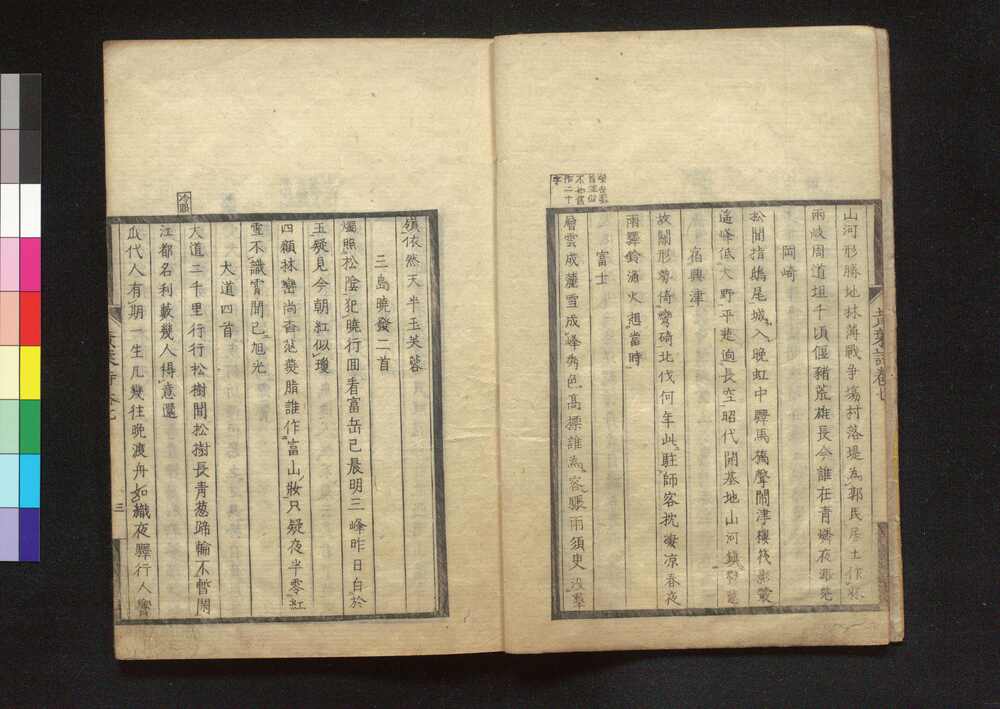 山河形勝地林薄戰爭場村落堤為郭民居土作
雨岐周道坦千頃偃豬荒雄長今誰在青燐夜
岡崎
松間指鴟尾城入晚虹中驛馬聲鬧津樓筏影
遙峰低大野平楚迥長空昭代開基地山河鎮
宿興津
故關形勢倚磽碕北伐何年此駐師客枕凄凉春夜
雨驛鈴漁火想當時
富士
層雲成麓雪成峰秀色高標誰為容驟雨須臾沒
嶺依然天半玉芙蓉
三島曉發二首
燭照松陰犯曉行回看富岳已晨明三峰昨日白於
玉疑見今朝紅似瓊
四顧林巒尚杳茫燕脂誰作富山妝只疑夜半零紅
雪不識霄間已旭光
大道四首
大道二千里行行松樹間松樹長青葱蹄輪不暫閑
江都名利藪幾人得意還
瓜代人有期一生凡幾往晚渡舟如織夜驛行人響
黃葉詩卷七
三